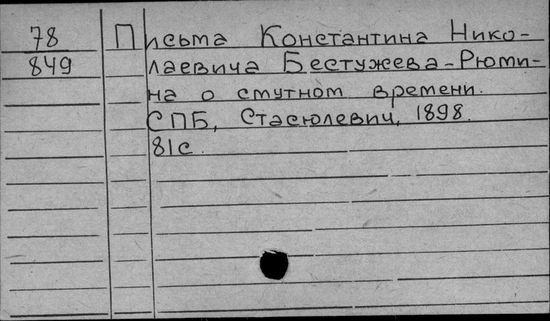 78 Письма Константина Нико-
849 лаевича Бестужева-Рюми-
на о смутном времени.
СПБ, Стасюлевич, 1898.
81с.